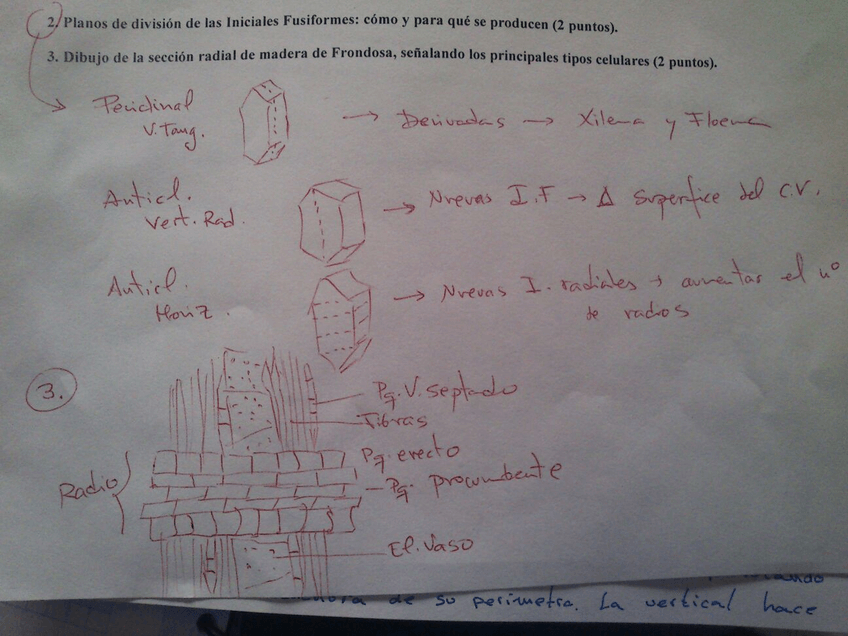 2. Planos de división de las Iniciales Fusiformes: cómo y para qué se producen (2 puntos).
3. Dibujo de la sección radial de madera de Frondosa, señalando los principales tipos celulares (2 puntos).
Periclinal → Derivadas → Xilema y Floema
V. Tang.
Anticl. → Nuevas I.F → Δ Superfice del C.V.
Vert. Rad.
Anticl. → Nuevas I. radiales → aumentar el nº
Horiz. de radios
3.
Pq. V. Septado
Fibras
Pq. erecto
Radio
Pq. procumbente
El. Vaso
de su perimetro. La vertical hace